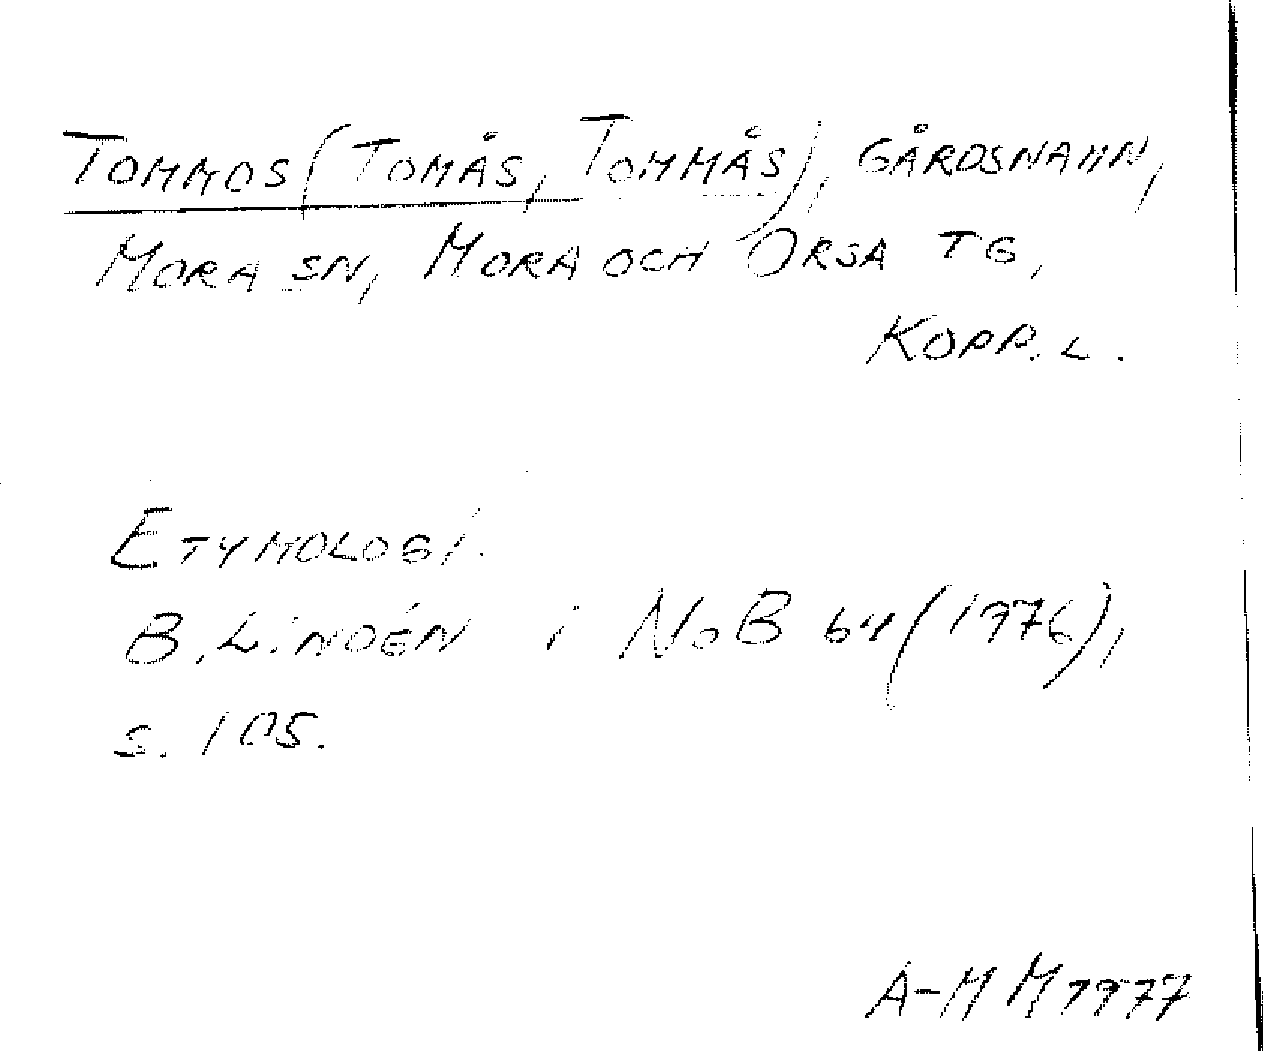 TOMMOS (TOMÅS, TOMMÅS), GÅRDSNAMN,
MORA SN, MORA OCH ORSA TG,
KOPP. L.
ETYMOLOGI.
B. LINDÉN I NoB 64 (1976),
S. 105.
A-M M 1977